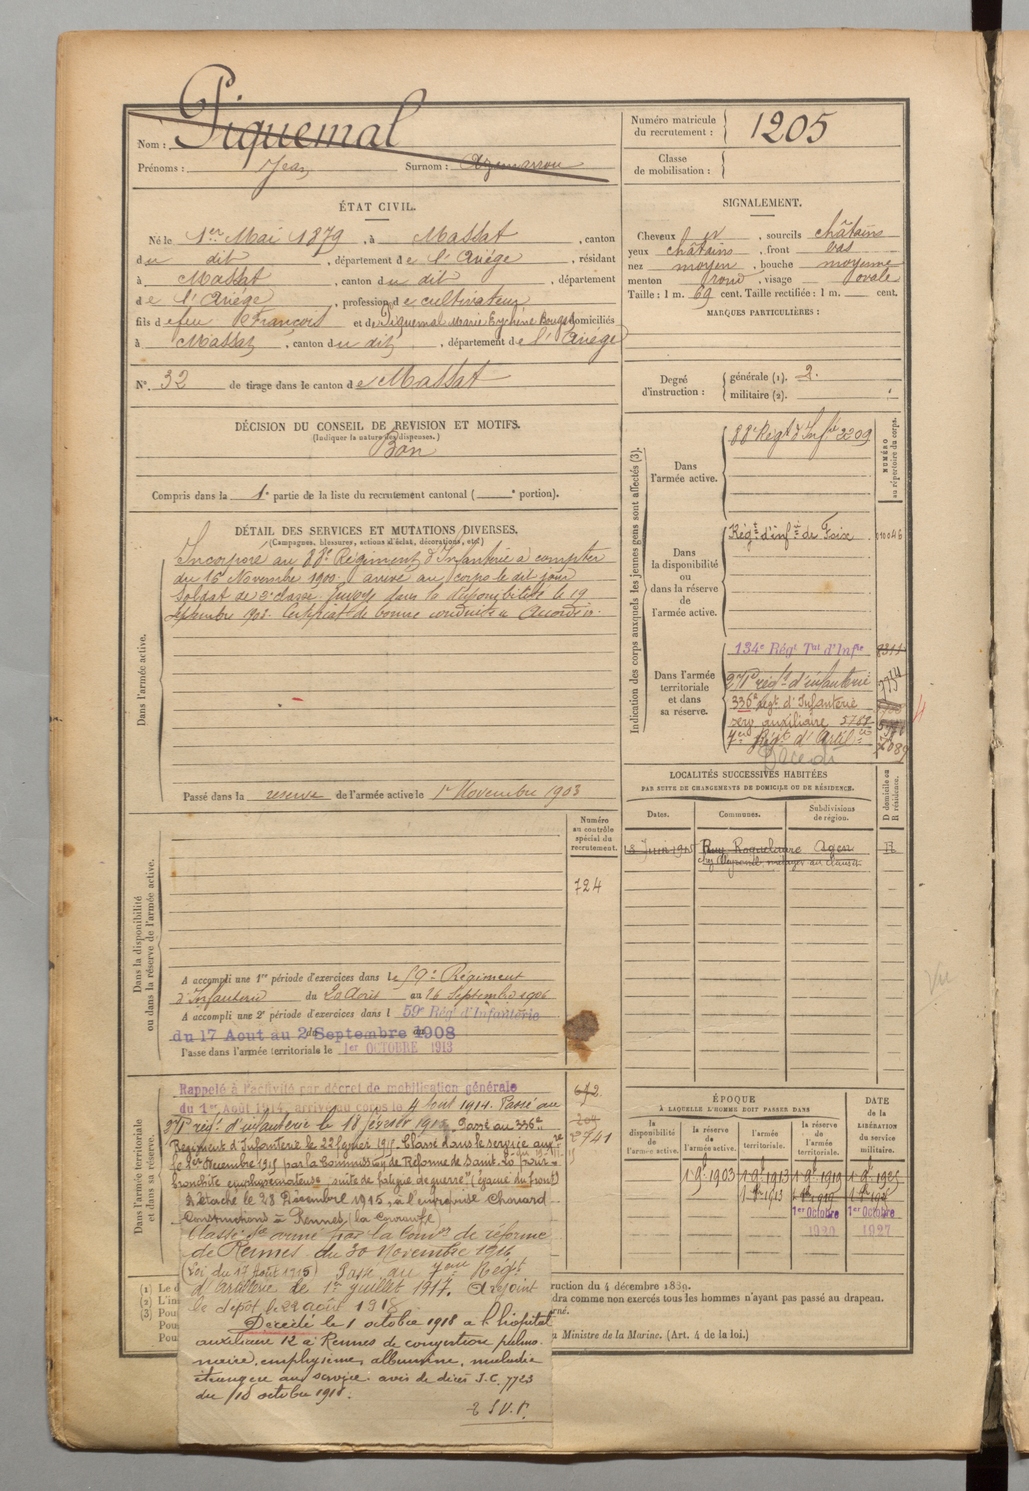 Nom : Piquemal
Prénoms : Jean Surnom :
Numéro matricule du recrutement : 1205
Classe de mobilisation :
ÉTAT CIVIL.
Né le 1er Mai 1879, à Massat, canton
du dit, département de l'Ariège, résidant
à Massat, canton du dit, département
de l'Ariège, profession de cultivateur
fils de feu François et de Piquemal Marie domiciliés
à Massat, canton du dit, département de l'Ariège
N° 32 de tirage dans le canton de Massat
SIGNALEMENT.
Cheveux et, sourcils châtains
yeux châtains, front bas
nez moyen, bouche moyenne
menton rond, visage ovale
Taille : 1 m. 69 cent. Taille rectifiée : 1 m. cent.
MARQUES PARTICULIÈRES :
Degré d'instruction : générale (1). 2.
militaire (2).
DÉCISION DU CONSEIL DE REVISION ET MOTIFS.
(Indiquer la nature des dispenses.)
Bon
Compris dans la 1e partie de la liste du recrutement cantonal ( e portion).
DÉTAIL DES SERVICES ET MUTATIONS DIVERSES.
(Campagnes, blessures, actions d'éclat, décorations, etc.)
Dans l'armée active.
Incorporé au 88e Régiment d'Infanterie à compter
du 15 Novembre 1900. arrivé au corps le dit jour
Soldat de 2e classe. Envoyé dans la disponibilité le 19
septembre 1903. Certificat de bonne conduite accordé
Passé dans la réserve de l'armée active le 1er Novembre 1903
Indication des corps auxquels les jeunes gens sont affectés (3).
NUMÉRO au répertoire du corps.
Dans l'armée active.
88e Régt d'Infie 2209
Dans la disponibilité ou dans la réserve de l'armée active.
Régt d'infie de Foix
Dans l'armée territoriale et dans sa réserve.
134e Régt Tal d'Infie
régt d'infanterie
336e régt d'Infanterie
serv auxiliaire
7e Régt d'Artie
Décédé
LOCALITÉS SUCCESSIVES HABITÉES
PAR SUITE DE CHANGEMENTS DE DOMICILE OU DE RÉSIDENCE.
D domicile ou R résidence.
Dates. Communes. Subdivisions de région.
Agen R
Dans la disponibilité ou dans la réserve de l'armée active.
Numéro au contrôle spécial du recrutement.
724
A accompli une 1re période d'exercices dans le 59e Régiment
d'Infanterie du 20 Août au 16 Septembre 1906
A accompli une 2e période d'exercices dans l 59e Rég d'Infanterie
du 17 Aout au 2 Septembre 1908
Passé dans l'armée territoriale le 1er OCTOBRE 1913
Dans l'armée territoriale et dans sa réserve.
2741
Rappelé à l'activité par décret de mobilisation générale
du 1er Août 1914, arrivé au corps le 4 août 1914. Passé au
régt d'infanterie le 18 février 1915. Passé au 336e
Régiment d'Infanterie le 22 février 1915. Classé dans le service aux
le 2 Décembre 1915 par la Commission de Réforme de Saint-Lô pour
bronchite emphysémateuse, suite de fatigue de guerre" (évacué du front)
Détaché le 28 Décembre 1915, à l'entreprise Chouard
Constructions à Rennes (la Courouze)
Classé Sce armé par la Comon de réforme
de Rennes du 30 Novembre 1916
(Loi du 17 Août 1915) Passé au 7eme Régt
d'artillerie de 1er juillet 1917. A rejoint
le dépôt le 22 août 1918
Décédé le 1 octobre 1918 à l'hôpital
auxiliaire 12 à Rennes de congestion pulmo-
naire, emphysème, albumine, maladie
étrangère au service. avis de décès J.C. 7723
du 10 octobre 1918.
T.S.V.P.
ÉPOQUE
À LAQUELLE L'HOMME DOIT PASSER DANS
la disponibilité de l'armée active.
la réserve de l'armée active.
l'armée territoriale.
la réserve de l'armée territoriale.
DATE de la LIBÉRATION du service militaire.
1er 9e 1903 1er 9e 1913 1er 9e 1919 1er 9e 1925
1er Octobre 1920 1er Octobre 1927
(1) Le d
(2) L'in
(3) Pou
Pou
Pou
ruction du 4 décembre 1889.
dra comme non exercés tous les hommes n'ayant pas passé au drapeau.
rné.
u Ministre de la Marine. (Art. 4 de la loi.)
Vu